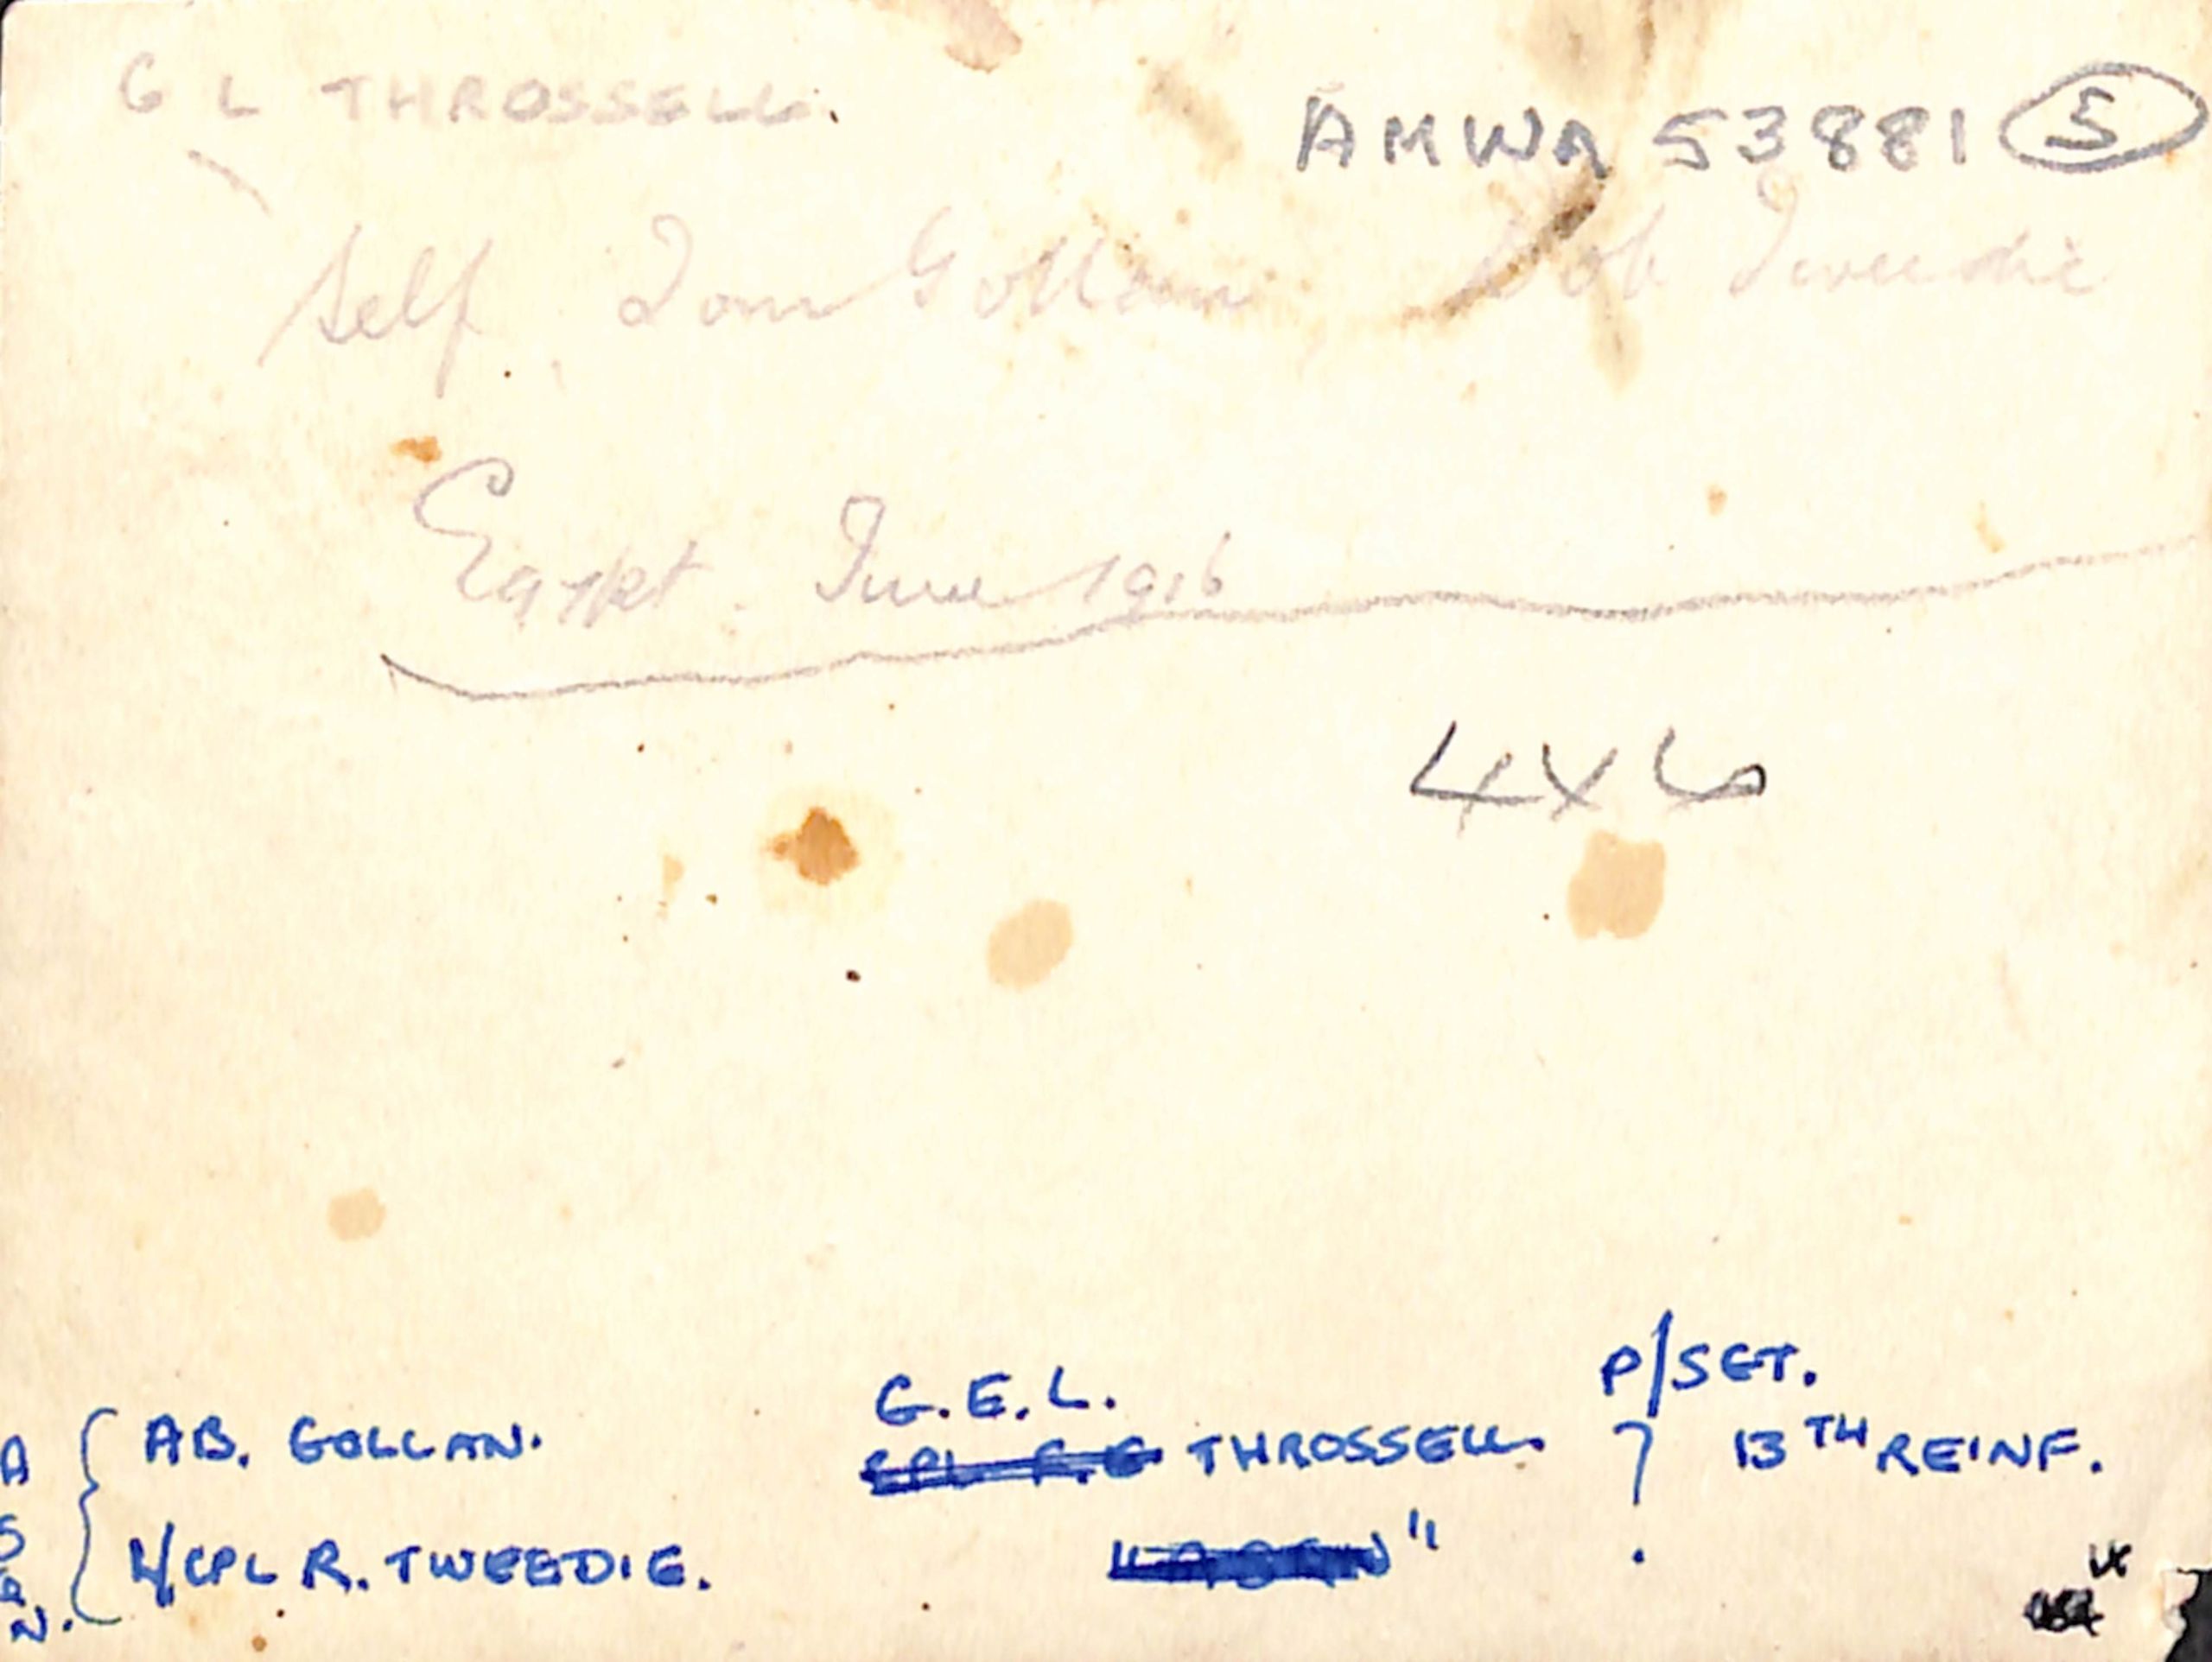 G L THROSSELL.
AMWA 53881 5
Self, Tom Gollan, Bob Tweedie
Egypt. June 1916
4x6
G.E.L. P/SGT.
AB. GOLLAN. THROSSELL. ? 13TH REINF.
L/CPL R. TWEEDIE. "